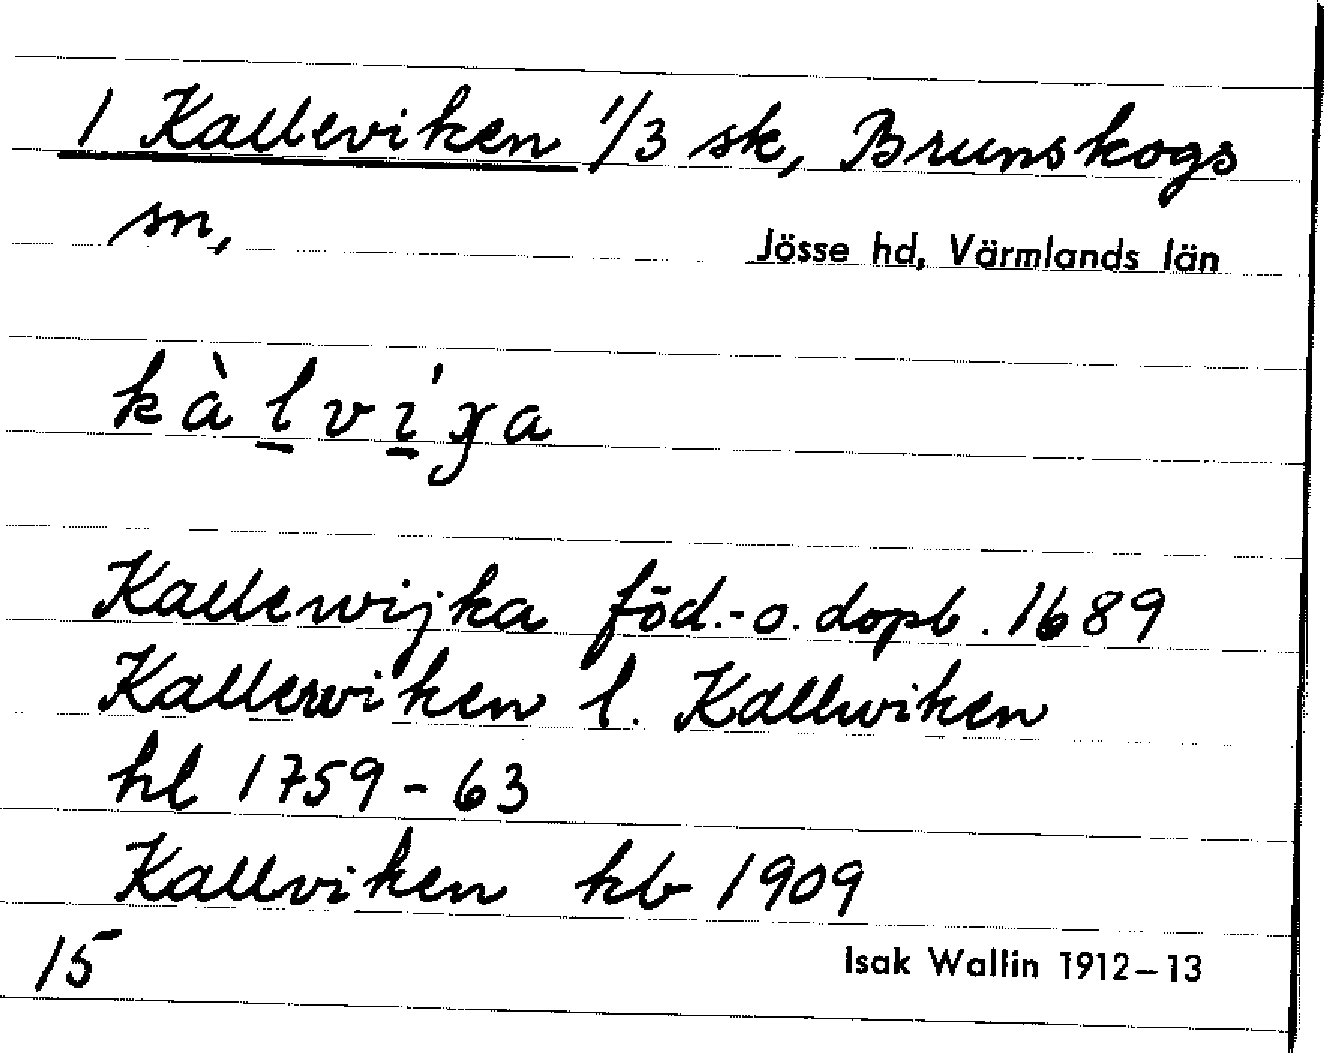 1 Kalleviken 1/3 sk, Brunskogs
sn,
Jösse hd, Värmlands län
kàlvi'ɣa
Kallewijka föd.-o. dopb. 1689
Kallewiken l. Kallwiken
hl 1759-63
Kallviken kb 1909
15
Isak Wallin 1912-13